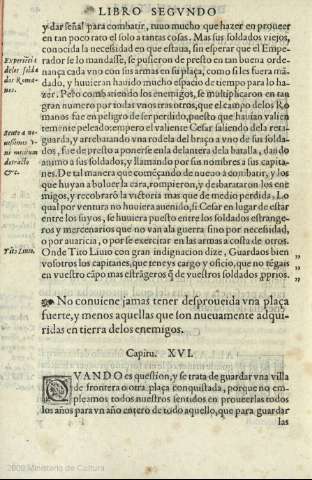 LIBRO SEGVNDO
y dar señal para combatir, tuuo mucho que hazer en proueer
en tan poco rato el solo a tantas cosas. Mas sus soldados viejos,
conocida la necessidad en que estaua, sin esperar que el Empe-
rador se lo mandasse, se pusieron de presto en tan buena orde-
nança cada vno con sus armas en su plaça, como si les fuera mã-
dado, y huuieran hauido mucho espacio de tiempo para lo ha-
zer. Pero combatiendo los enemigos, se multiplicaron en tan
gran numero por todas vnos tras otros, que el campo delos Ro
manos fue en peligro de ser perdido, puesto que hauian valien
temente peleado: empero el valiente Cesar saliendo dela reta-
guarda, y arrebatando vna rodela del braço a vno de sus solda-
dos, fue de presto a ponerse enla delantera dela batalla, dando
animo a sus soldados, y llamando por sus nombres a sus capita-
nes. De tal manera que començando de nueuo a combatir, y los
que huyan a boluer la cara, rompieron, y desbarataron los ene
migos, y recobraron la victoria mas que de medio perdida. Lo
qual por ventura no huuiera auenido, si Cesar en lugar de estar
entre los suyos, se huuiera puesto entre los soldados estrange-
ros y mercenarios que no van ala guerra sino por necessidad,
o por auaricia, o por se exercitar en las armas a costa de otros.
Onde Tito Liuio con gran indignacion dize, Guardaos bien
vosotros los capitanes, que teneys cargo y oficio, que no tẽgais
en vuestro cãpo mas estrãgeros q̃ de vuestros soldados pprios.
Experiẽcia
delos solda
dos Roma-
nos.
Tito Liuio.
No conuiene jamas tener desproueida vna plaça
fuerte, y menos aquellas que son nueuamente adqui-
ridas en tierra delos enemigos.
Capitu. XVI.
QVANDO es question, y se trata de guardar vna villa
de frontera o otra plaça conquistada, porque no en-
pleamos todos nuestros sentidos en proueerlas todos
los años para vn año entero de todo aquello, que para guardar
las
2009 Ministerio de Cultura